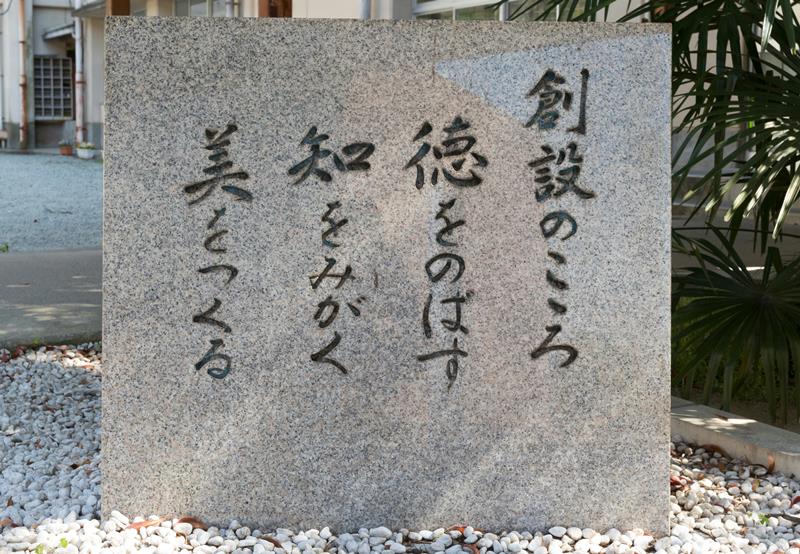 創設のこころ
徳をのばす
知をみがく
美をつくる